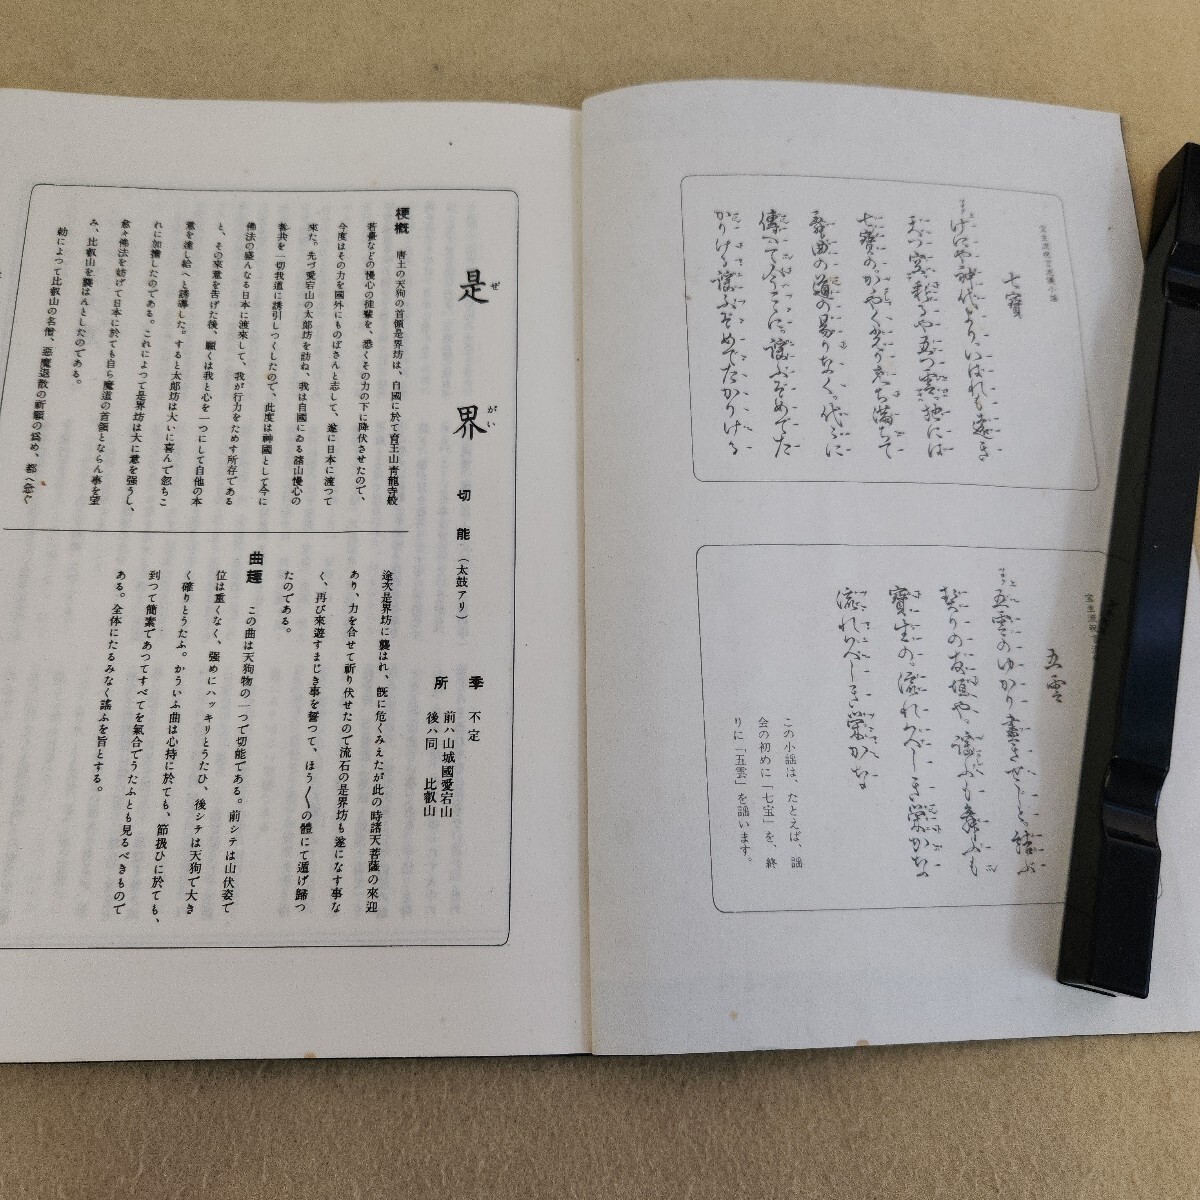 七寳
げにや神代より。いはれも遠き
舞曲の道の昜りなくて。代々に
傳へて今こゝに。謠ふぞめでた
かりける謠ふぞめでたかりける
五雲
五雲のゆかり書きせじと。結ぶ
契りの友垣や。謠ふも舞ふも
寶生の。流れ久しき榮かな
流れ久しき榮かな
この小謡は、たとえば、謡
会の初めに「七宝」を、終
りに「五雲」を謡います。
是界
ぜがい
切能(太鼓アリ)
季 不定
所 前ハ山城國愛宕山
後ハ同 比叡山
梗概 唐土の天狗の首領是界坊は、自國に於て育王山青龍寺般
若臺などの慢心の徒輩を、悉くその力の下に降伏させたので、
今度はその力を國外にものばさんと志して、遂に日本に渡つて
來た。先づ愛宕山の太郎坊を訪ね、我は自國にある諸山慢心の
輩共を一切我道に誘引しつくしたので、此度は神國として今に
佛法の盛んなる日本に渡來して、我が行力をためす所存である
と、その來意を告げた後、願くは我と心を一つにして自他の本
意を達し給へと誘導した。すると太郎坊は大いに喜んで忽ちこ
れに加擔したのである。これによつて是界坊は大に意を強うし、
愈々佛法を妨げて日本に於ても自ら魔道の首領とならん事を望
み、比叡山を襲はんとしたのである。
勅によつて比叡山の名僧、惡魔退散の祈願の爲め、都へ急ぐ
途次是界坊に襲はれ、既に危くみえたが此の時諸天菩薩の來迎
あり、力を合せて祈り伏せたので流石の是界坊も遂になす事な
く、再び來遊すまじき事を誓つて、ほう〱の體にて遁げ歸つ
たのである。
曲趣 この曲は天狗物の一つで切能である。前シテは山伏姿で
位は重くなく、強めにハッキリとうたひ、後シテは天狗で大き
く確りとうたふ。かういふ曲は心持に於ても、節扱ひに於ても、
到つて簡素であつてすべてを氣合でうたふとも見るべきもので
ある。全体にたるみなく謠ふを旨とする。